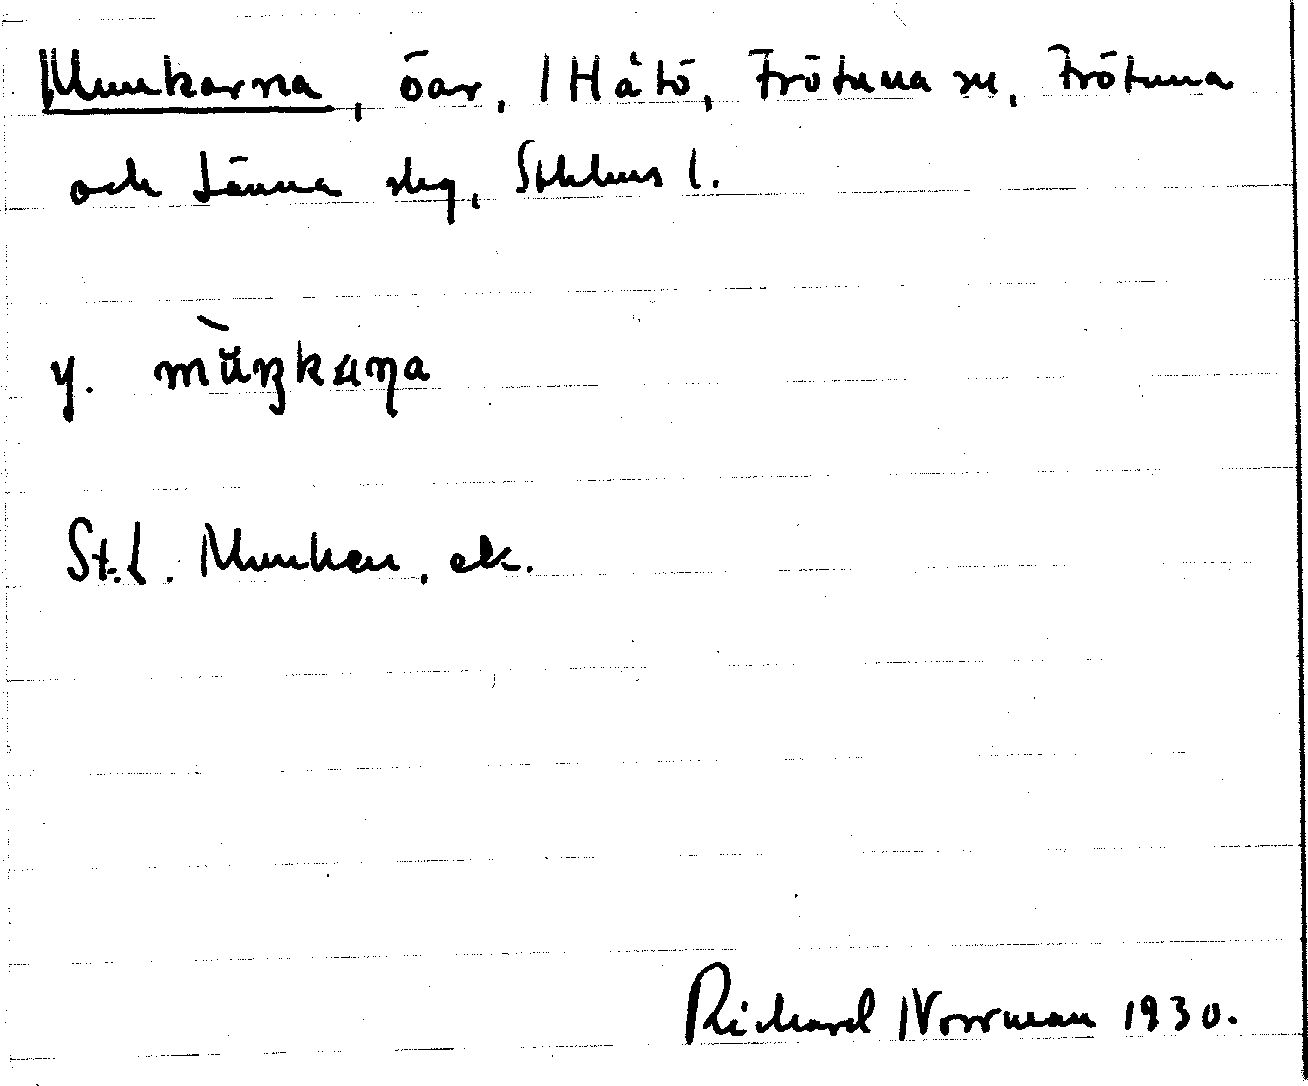 Munkarna, öar, 1 Håtö, Frötuna sn, Frötuna
och Länna skg, Sthlms l.
y.
St. L. Munken, ek.
Richard Norrman 1930.